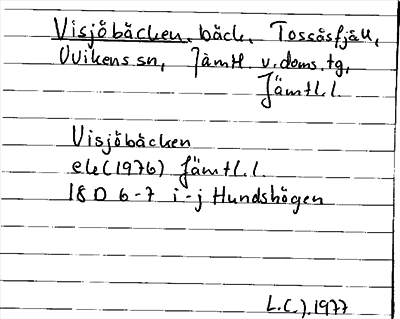 Visjöbäcken, bäck, Tossåsfjäll,
Ovikens sn, Jämtl. v. doms. tg,
Jämtl. l.
Visjöbäcken
ek (1976) Jämtl. l.
18 D 6-7 i-j Hundshögen
1977